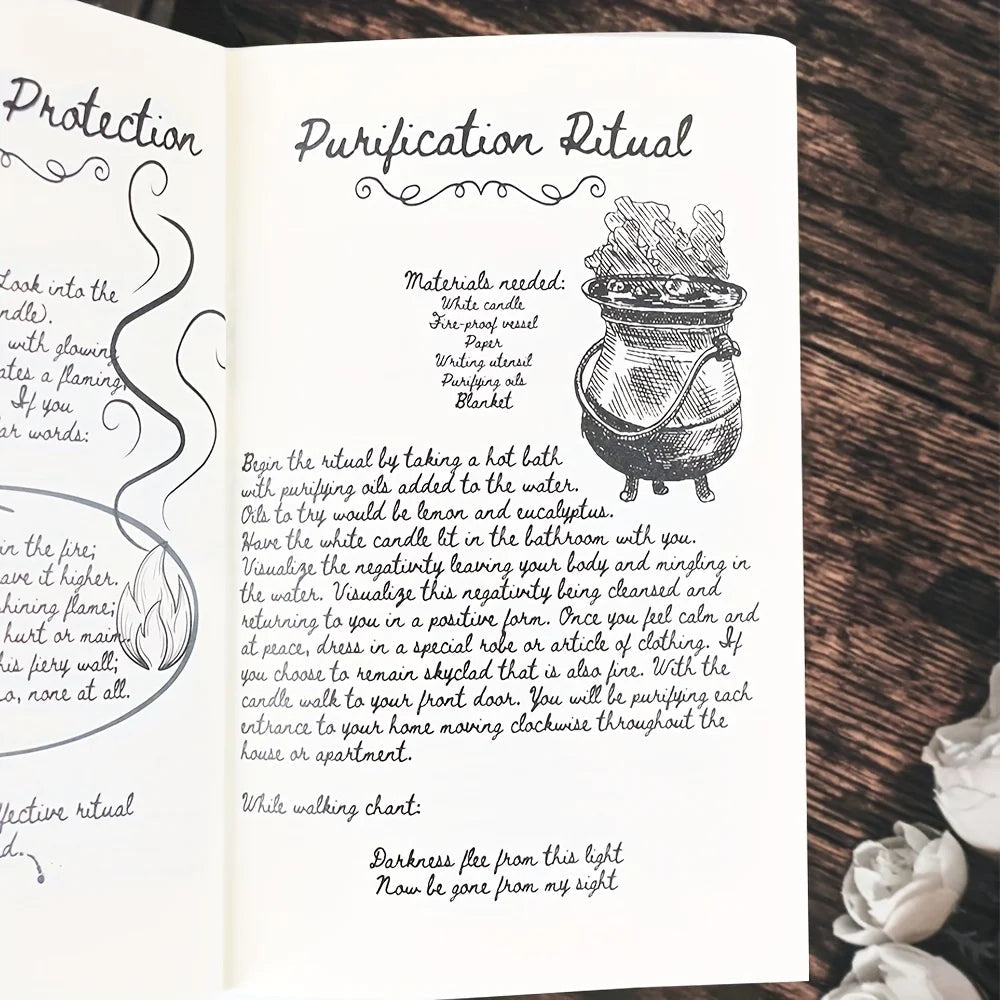 Protection
Look into the
ndle).
with glowing
ates a flaming
If you
ar words:
in the fire;
ave it higher.
shining flame;
hurt or maim.
his fiery wall;
o, none at all.
ffective ritual
d.
Purification Ritual
Materials needed:
White candle
Fire-proof vessel
Paper
Writing utensil
Purifying oils
Blanket
Begin the ritual by taking a hot bath
with purifying oils added to the water.
Oils to try would be lemon and eucalyptus.
Have the white candle lit in the bathroom with you.
Visualize the negativity leaving your body and mingling in
the water. Visualize this negativity being cleansed and
returning to you in a positive form. Once you feel calm and
at peace, dress in a special robe or article of clothing. If
you choose to remain skyclad that is also fine. With the
candle walk to your front door. You will be purifying each
entrance to your home moving clockwise throughout the
house or apartment.
While walking chant:
Darkness flee from this light
Now be gone from my sight